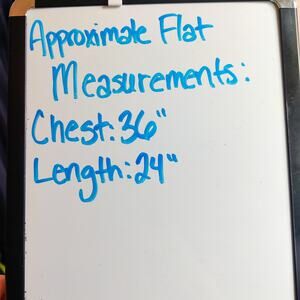 Approximate Flat
Measurements:
Chest: 36"
Length: 24"